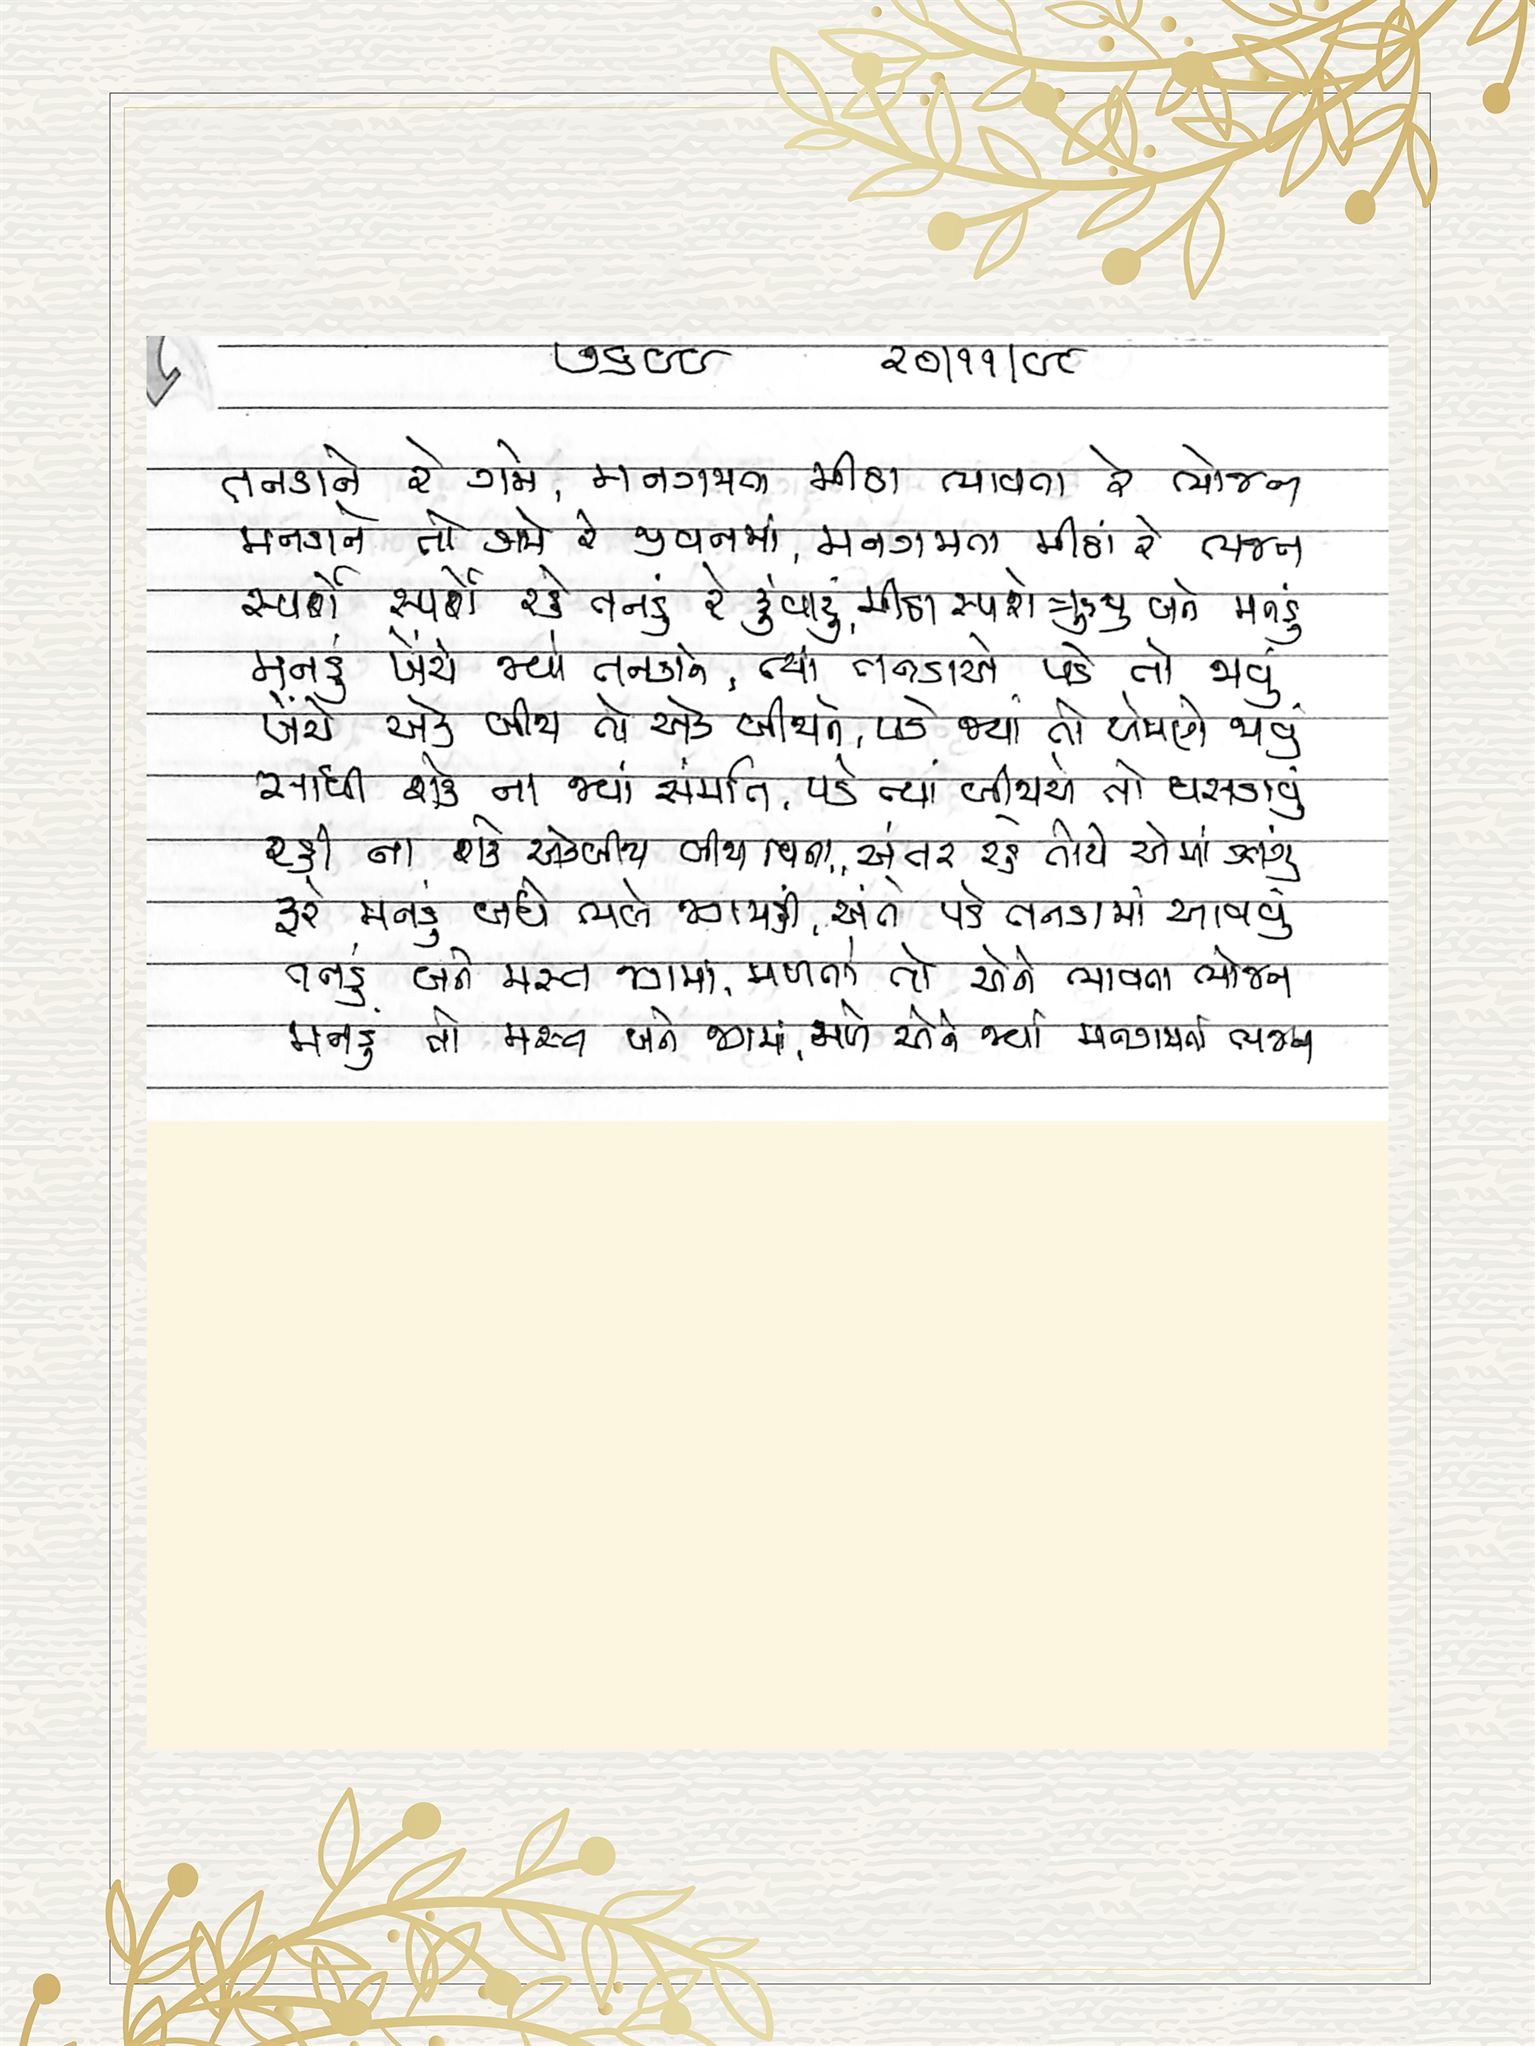 ૭૬૯૯ ૨૦/૧૧/૯૯
તનડાને રે ગમે, મનગમતા મીઠા ભાવતા રે ભોજન
મનડાને તો ગમે રે જીવનમાં, મનગમતા મીઠાં રે ભજન
સ્પર્શે સ્પર્શે રહે તનડું રે રૂંવાડું, મીઠા સ્પર્શે બને મનડું
મનડું ખેંચે જ્યાં તનડાને, ત્યાં તનડાએ પડે તો જવું
ખેંચે એક બીજા તો એક બીજાને, પડે જ્યાં તો બંનેએ જવું
સાધી શકે ના જ્યાં સંમતિ, પડે ત્યાં બીજાએ તો ઘસડાવું
રહી ના શકે એકબીજા બીજા વિના, અંતર રહે તોયે એમાં
ફરે મનડું બધે ભલે જગમહીં, અંતે પડે તનડામાં આવવું
તનડું બને મસ્ત જગમાં, મળતાં તો એને ભાવતા ભોજન
મનડું તો મસ્ત બને જગમાં, મળે એને જ્યાં મનગમતાં ભજન